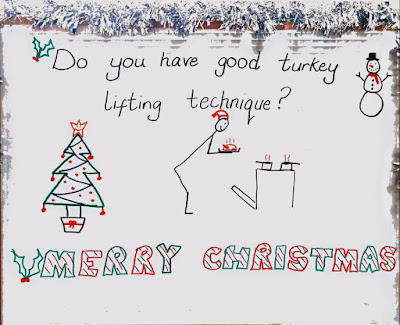 Do you have good turkey
lifting technique?
MERRY CHRISTMAS